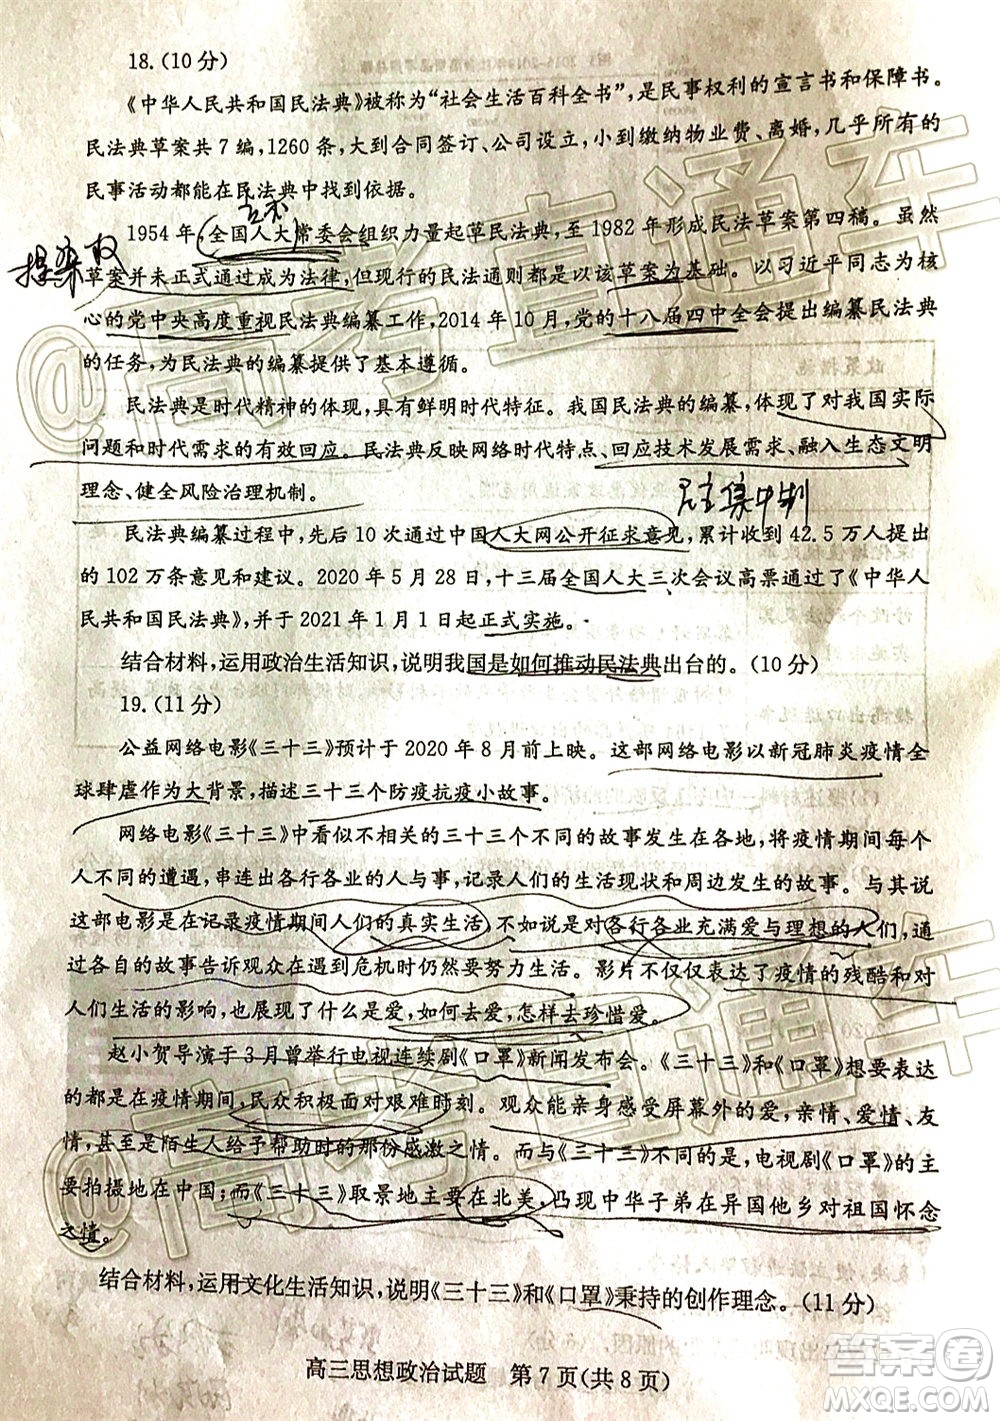 18.(10分)
《中华人民共和国民法典》被称为“社会生活百科全书”,是民事权利的宣言书和保障书。
民法典草案共7编,1260条,大到合同签订、公司设立,小到缴纳物业费、离婚,几乎所有的
民事活动都能在民法典中找到依据。
1954年,全国人大常委会组织力量起草民法典,至1982年形成民法草案第四稿。虽然
提案权
草案并未正式通过成为法律,但现行的民法通则都是以该草案为基础。以习近平同志为核
心的党中央高度重视民法典编纂工作,2014年10月,党的十八届四中全会提出编纂民法典
的任务,为民法典的编纂提供了基本遵循。
民法典是时代精神的体现,具有鲜明时代特征。我国民法典的编纂,体现了对我国实际
问题和时代需求的有效回应。民法典反映网络时代特点、回应技术发展需求、融入生态文明
理念、健全风险治理机制。
民主集中制
民法典编纂过程中,先后10次通过中国人大网公开征求意见,累计收到42.5万人提出
的102万条意见和建议。2020年5月28日,十三届全国人大三次会议高票通过了《中华人
民共和国民法典》,并于2021年1月1日起正式实施。
结合材料,运用政治生活知识,说明我国是如何推动民法典出台的。(10分)
19.(11分)
公益网络电影《三十三》预计于2020年8月前上映。这部网络电影以新冠肺炎疫情全
球肆虐作为大背景,描述三十三个防疫抗疫小故事。
网络电影《三十三》中看似不相关的三十三个不同的故事发生在各地,将疫情期间每个
人不同的遭遇,串连出各行各业的人与事,记录人们的生活现状和周边发生的故事。与其说
这部电影是在记录疫情期间人们的真实生活,不如说是对各行各业充满爱与理想的人们,通
过各自的故事告诉观众在遇到危机时仍然要热爱生活。影片不仅表达了疫情的残酷和对
人们生活的影响,也展现了什么是爱,如何去爱,怎样去珍惜爱。
赵小贺导演于3月曾举行电视连续剧《口罩》新闻发布会。《三十三》和《口罩》想要表达
的都是在疫情期间,民众积极面对艰难时刻。观众能亲身感受屏幕外的爱,亲情、爱情、友
情,甚至是陌生人给予帮助时的那份感激之情。而与《三十三》不同的是,电视剧《口罩》的主
要拍摄地在中国;而《三十三》取景地主要在北美,凸现中华子弟在异国他乡对祖国怀念
之情。
结合材料,运用文化生活知识,说明《三十三》和《口罩》秉持的创作理念。(11分)
高三思想政治试题 第7页(共8页)
@高考直通车
@高考直通车
答案圈
MXQE.COM